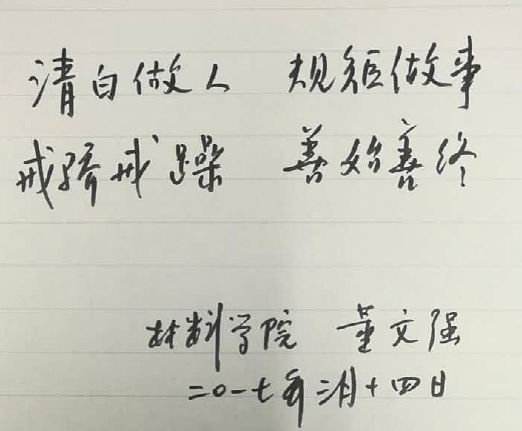 清白做人 规矩做事
戒骄戒躁 善始善终
材料学院 董文强
二0一七年二月十四日